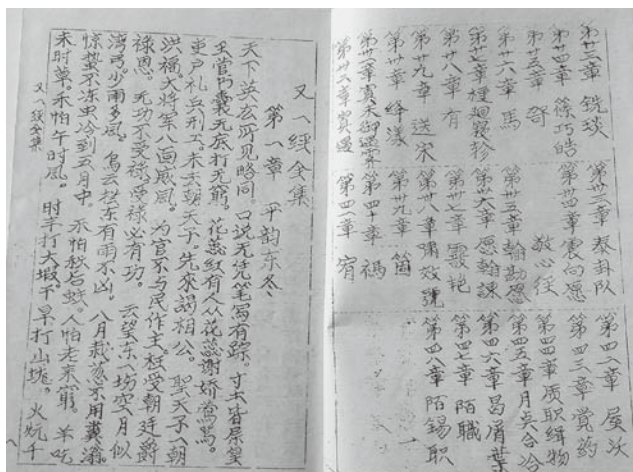 第廿三章 銑琰
第廿四章 筱巧皓
第廿五章 哿
第廿六章 馬
第廿七章 梗迴寢軫
第廿八章 有
第廿九章 送宋
第卅章 绛漾
第卅一章 寘未御遇霁
第卅二章 寘遇
第卅三章 泰卦队
第卅四章 震向愿
敬心径
第卅五章 翰勘愿
第卅六章 愿翰諫
第卅七章 霰艳
第卅八章 啸效號
第卅九章 箇
第四十章 禡
第四一章 宥
第四二章 屋沃
第四三章 覺約
第四四章 质职缉物
第四五章 月点合冷
第四六章 曷屑葉
第四七章 陌職
第四八章 陌錫职
又人經全集
第一章 平韵东冬
天下英宏所见略同。口说无凭笔写有踪。寸木皆屎箕
王管内囊无底打无窮。花蕊红有人从花蕊谢娇鸾骂。
吏户礼兵刑工。未去朝天子。先來謁相公。聖天子入朝
洪福。大将军八面威风。为官不与民作主。枉受朝廷爵
禄恩。无功不受禄受禄必有功。云望东一场空月似
湾弓少雨多風。烏云拦东有雨不凶。八月栽葱不用糞滃。
惊蛰不冻虫冷到五月中。禾怕秋后蚊。人怕老来窮。羊吃
未时草。禾怕午时風。时羊打大塅。干旱打山垅。火炕千
又人經全集